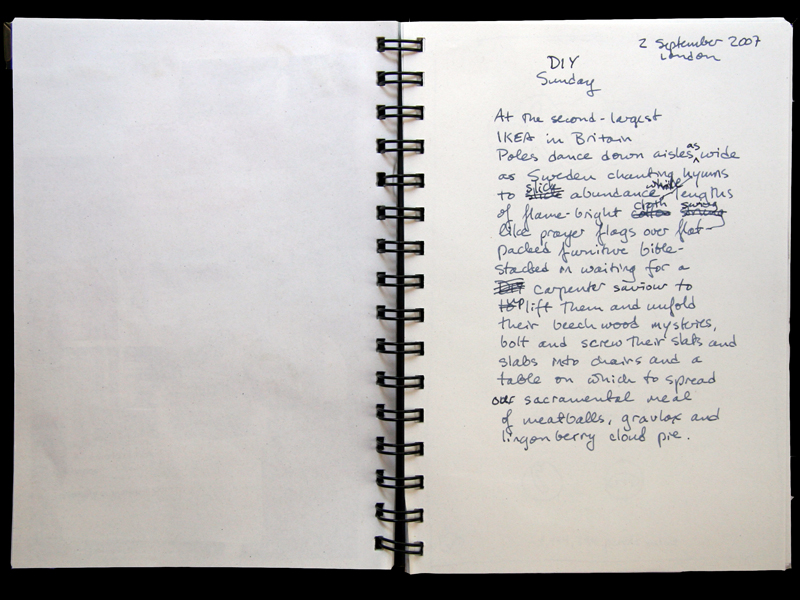 2 September 2007
London
DIY
Sunday
At the second-largest
IKEA in Britain
Poles dance down aisles as wide
as Sweden chanting hymns
to slick abundance while lengths
of flame-bright cloth swing
like prayer flags over flat-
packed furniture bible-
stacked in waiting for a
carpenter saviour to
uplift them and unfold
their beechwood mysteries,
bolt and screw their slats and
slabs into chairs and a
table on which to spread
our sacramental meal
of meatballs, gravlax and
lingonberry cloud pie.